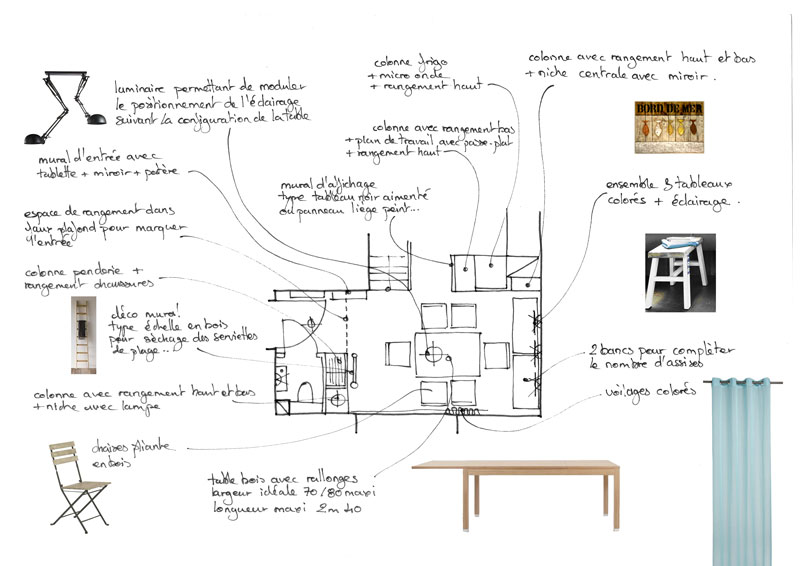 colonne frigo
+ micro onde
+ rangement haut
colonne avec rangement haut et bas
+ niche centrale avec miroir.
luminaire permettant de moduler
le positionnement de l'éclairage
suivant la configuration de la table
BORD DE MER
colonne avec rangement bas
+ plan de travail avec passe-plat
+ rangement haut
mural d'entrée avec
tablette + miroir + patère
mural d'affichage
type tableau noir aimenté
ou panneau liège peint...
ensemble 3 tableaux
colorés + éclairage.
espace de rangement dans
faux plafond pour marquer
l'entrée
colonne penderie +
rangement chaussures
déco mural
type échelle en bois
pour sèchage des serviettes
de plage...
2 bancs pour complèter
le nombre d'assises
colonne avec rangement haut et bas
+ niche avec lampe
voilages colorés
chaises pliante
en bois
table bois avec rallonges
largeur idéale 70/80 maxi
longueur maxi 2m40